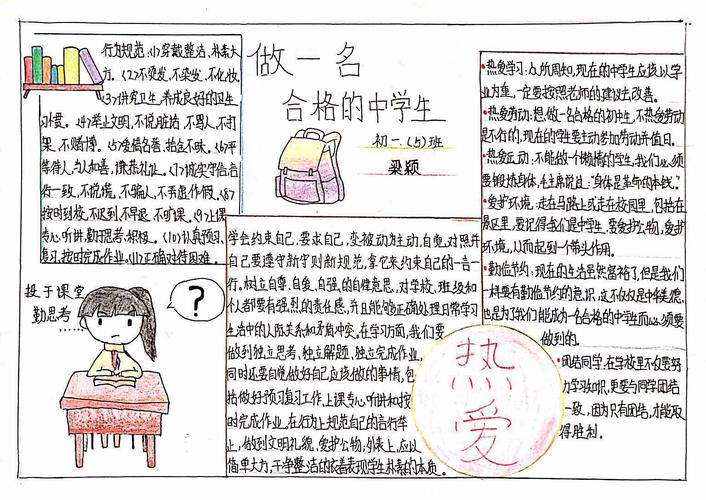 做一名
合格的中学生
初一.(5)班
梁颖
行为规范:(1)穿戴整洁、朴素大
方。(2)不烫发,不染发,不化妆,
(3)讲究卫生,养成良好的卫生
习惯。(4)举止文明,不说脏话,不骂人,不打
架,不赌博。(5)爱惜名誉,拾金不昧。(6)平
等待人,与人和善,谦恭礼让。(7)诚实守信,言
行一致,不说谎,不骗人,不弄虚作假。(8)
按时到校,不迟到,不早退,不旷课。(9)上课
专心听讲,勤于思考,积极。(10)认真预习、
复习,按时完成作业。(11)正确对待困难。
投于课堂
勤思考
?
学会约束自己,要求自己,变被动为主动,自觉对照并
自己要遵守新守则新规范,拿它来约束自己的一言一
行,树立自尊、自爱、自强、的自律意思,对学校、班级和
人都要有强烈的责任感,并且能够正确处理日常学习
生活中的人际关系和矛盾冲突。在学习方面,我们要
做到独立思考、独立解题、独立完成作业,
同时还要自觉做好自己应该做的事情,包
括做好预习复习工作,上课专心听讲和按
时完成作业。在行为上规范自己的言行举
止,做到文明礼貌,爱护公物,外表上,应以
简单大方,干净整洁的衣着表现学生朴素的本质。
热
爱
•热爱学习:众所周知,现在的中学生应该以学
业为重,一定要按照老师的建议去改善。
•热爱劳动:想做一名合格的初中生,不热爱劳动
是不行的,现在的学生要主动参加劳动并值日。
•热爱运动:不能做一个懒惰的学生,我们必须
要锻炼身体,毛主席说过:"身体是革命的本钱。"
•爱护环境,走在马路上或走在校园里,包括在
景区里,要记得我们是中学生,要爱护公物,爱护
环境,从而起到一个带头作用。
•勤俭节约:现在的生活虽然富裕了,但是我们一
样要有勤俭节约的意识,这不仅仅是中华美德,
也是为了我们能成为一名合格的中学生而必须要
做到的。
•团结同学,在学校里不仅要努
力学习知识,更要与同学团结
一致,因为只有团结,才能取
得胜利。